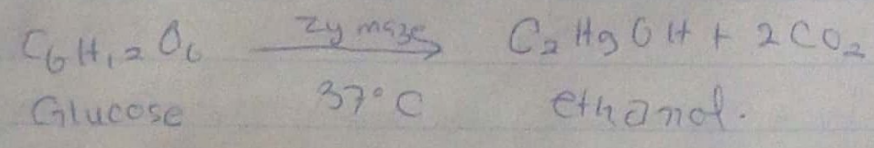 C₆H₁₂O₆ zymase → C₂H9OH + 2CO₂
Glucose 37°C ethanol.